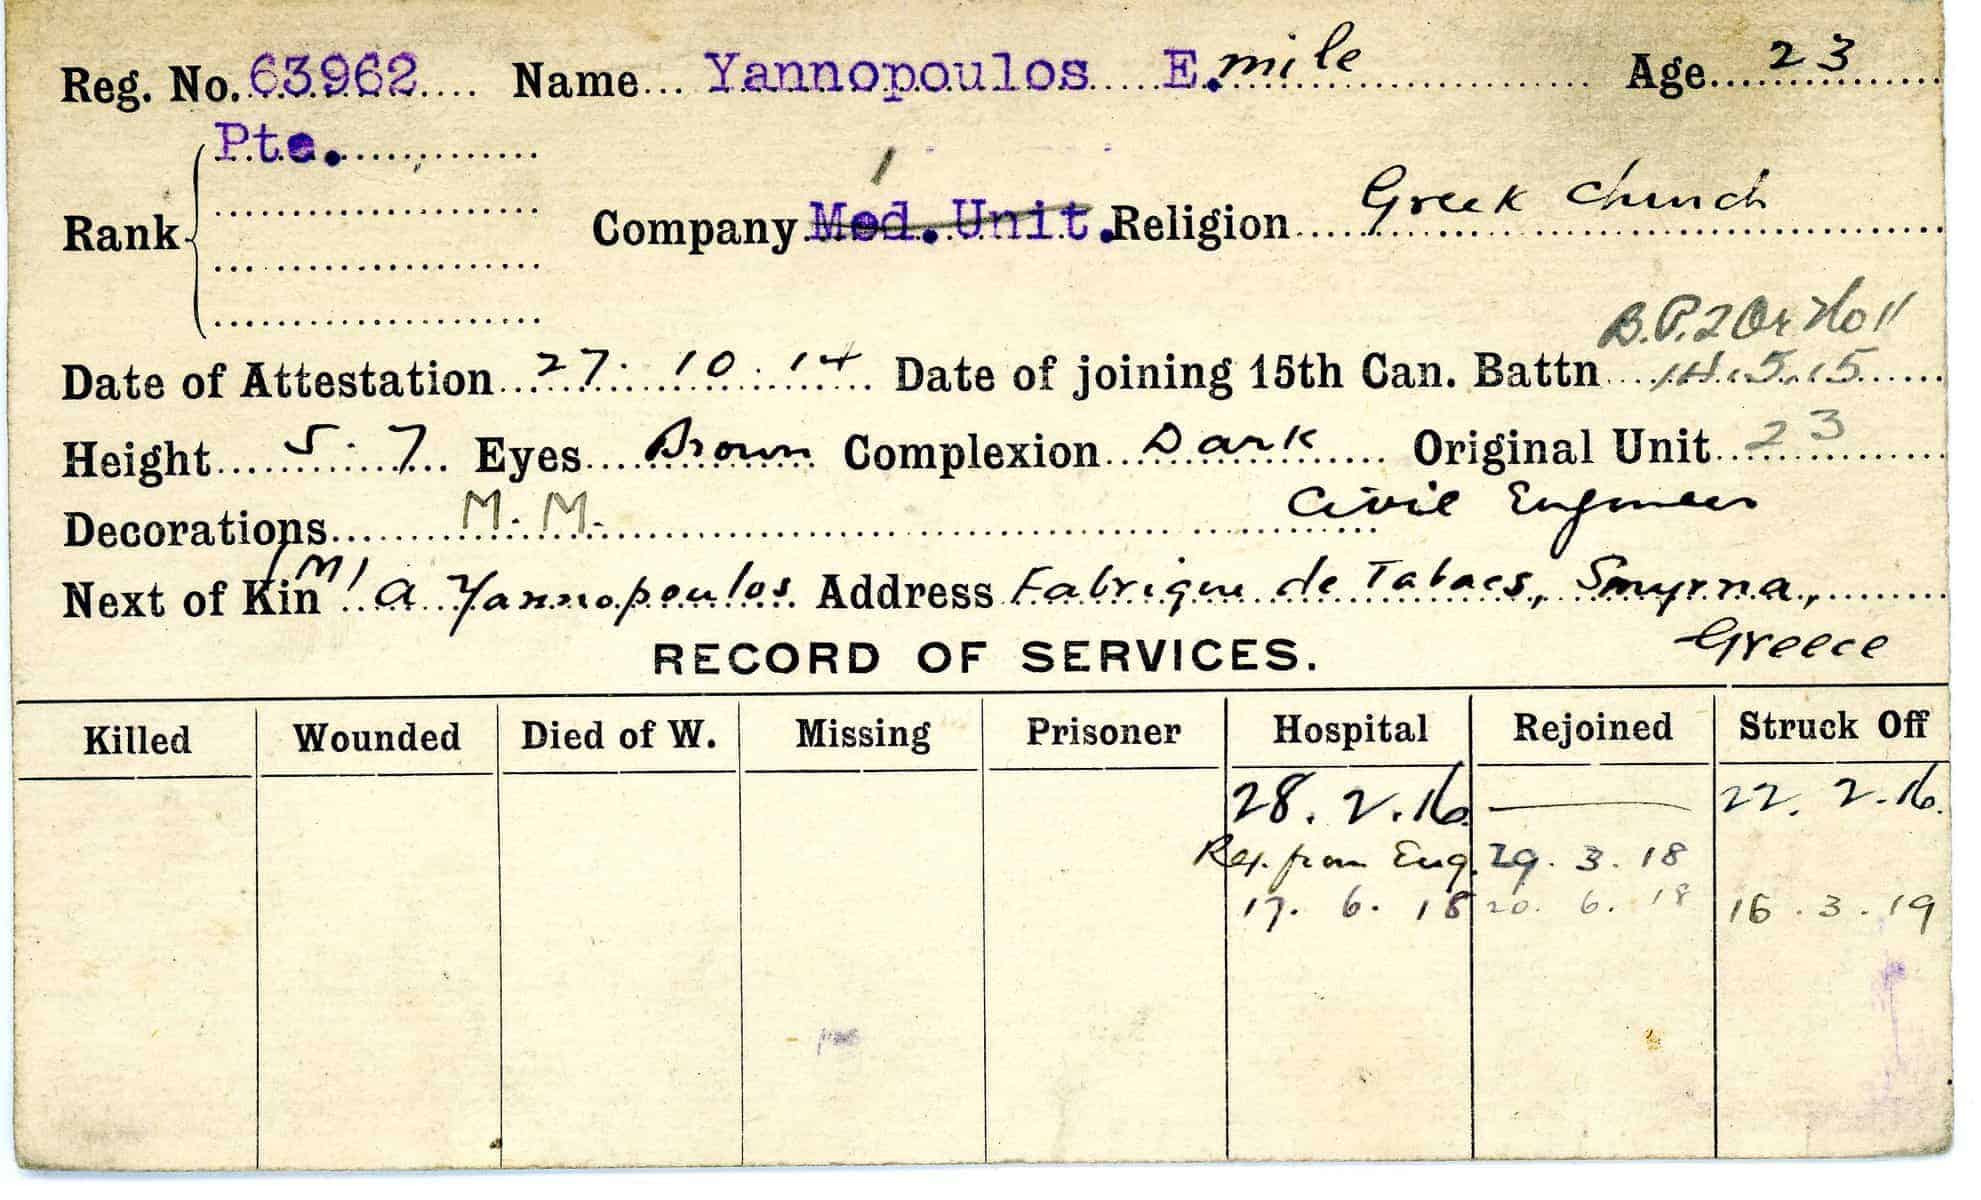 Reg. No. 63962 Name Yannopoulos E.mile Age 23
Pte.
Rank Company Med. Unit. Religion Greek Church
1
B.P. 2
Date of Attestation 27. 10. 14 Date of joining 15th Can. Battn 14.5.15
Height 5. 7 Eyes Brown Complexion Dark Original Unit 23
Decorations M. M. Civil Engineer
Next of Kin A Yannopoulos Address Fabrique de Tabacs, Smyrna,
Greece
RECORD OF SERVICES.
Killed Wounded Died of W. Missing Prisoner Hospital Rejoined Struck Off
28. 2. 16. 22. 2. 16.
from Eng. 29. 3. 18
17. 6. 18 20. 6. 18 16. 3. 19